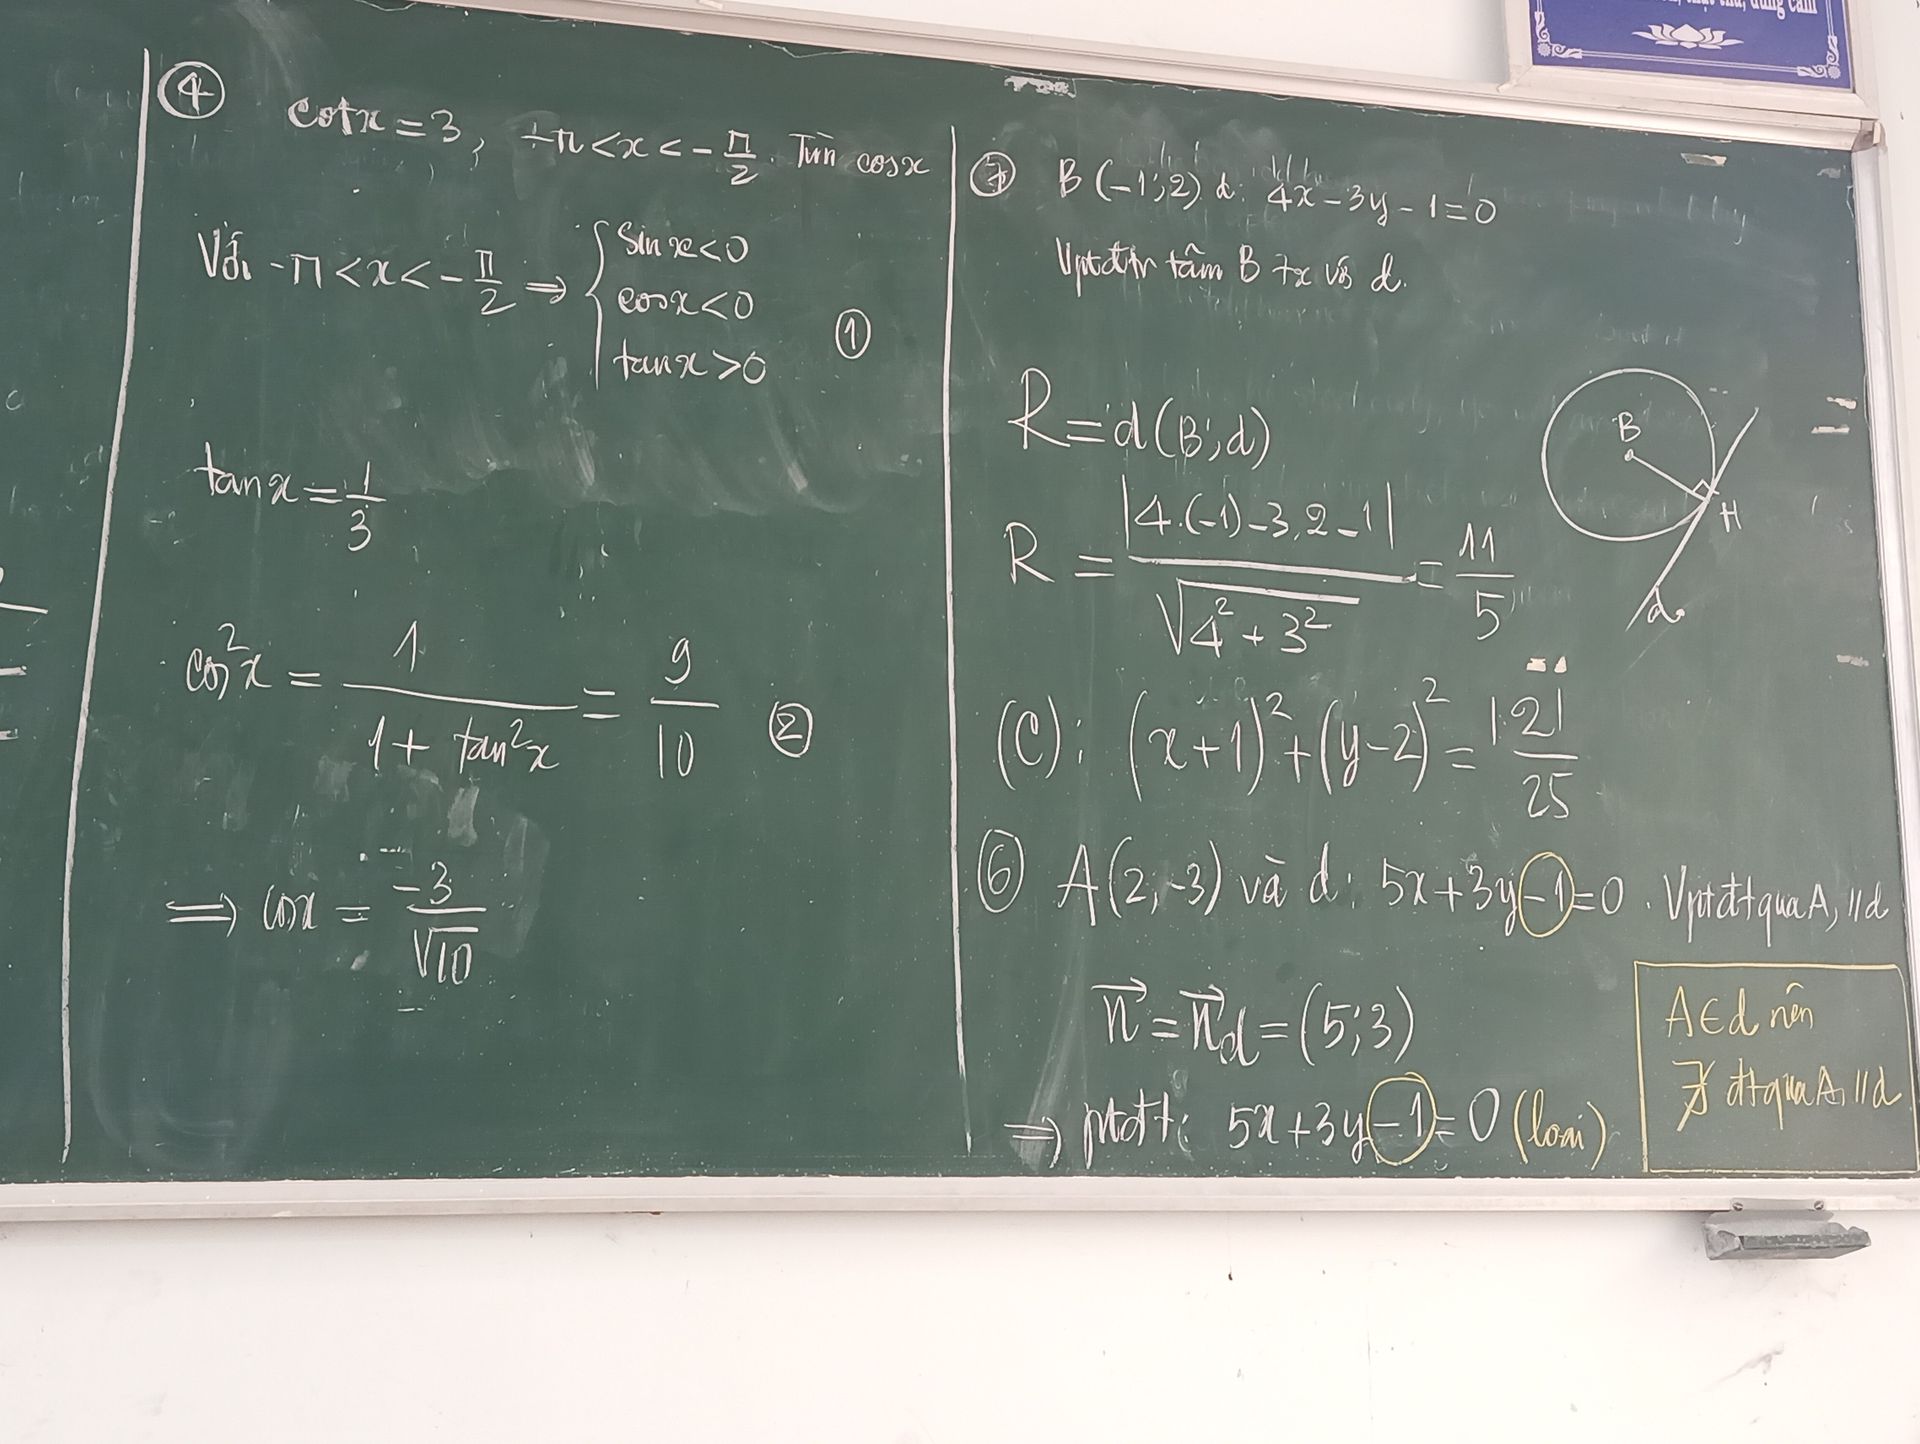 ④ cotx = 3, -π < x < -π/2. Tìm cosx
Với -π < x < -π/2 ⇒ { sinx < 0
cosx < 0
tanx > 0 ①
tanx = 1/3
cos²x = 1/(1 + tan²x) = 9/10 ②
⇒ cosx = -3/√10
⑦ B(-1;2) d: 4x - 3y - 1 = 0
Vptđtr tâm B tx với d.
R = d(B;d)
R = |4.(-1) - 3.2 - 1|/√(4² + 3²) = 11/5
B
H
d
(C): (x+1)² + (y-2)² = 121/25
⑥ A(2;-3) và d: 5x + 3y - 1 = 0. Vptđt qua A, // d
n⃗ = n⃗d = (5;3)
⇒ ptđt: 5x + 3y - 1 = 0 (loại)
A ∈ d nên
∄ đt qua A, // d